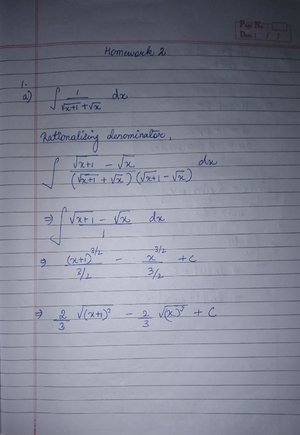 Page No.
Date: / /
Homework 2
1.
a) ∫ 1/(√x+1 + √x) dx
Rationalising denominator,
∫ (√x+1 - √x)/((√x+1 + √x)(√x+1 - √x)) dx
⇒ ∫ (√x+1 - √x)/1 dx
⇒ (x+1)^(3/2)/(3/2) - x^(3/2)/(3/2) + c
⇒ 2/3 √(x+1)³ - 2/3 √(x)³ + C